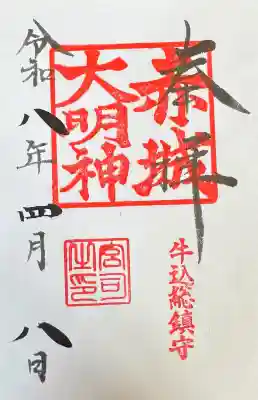 奉拝
赤城
大明神
牛込総鎮守
宮司之印
令和八年四月八日